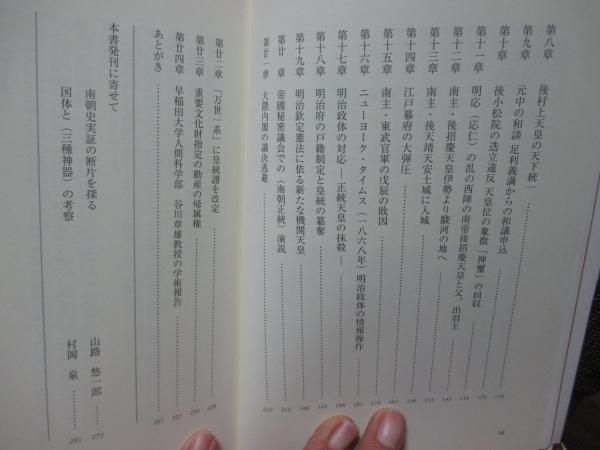 第八章 後村上天皇の天下統一
第九章 元中の和談 足利義満からの和議申込
第十章 後小松院の迭立違反 天皇位の象徴「神璽」の回収
第十一章 明応(応仁)の乱の西陣の南帝後招慶天皇と父、出羽王
第十二章 南主・後招慶天皇伊勢より駿河の地へ
第十三章 南主・後天靖天安土城に入城
第十四章 江戸幕府の大弾圧
第十五章 南主・東武官軍の戊辰の敗因
第十六章 ニューヨーク・タイムス(一八六八年)明治政体の情報操作
第十七章 明治政体の対応―正統天皇の抹殺―
第十八章 明治府の戸籍制定と皇統の墓奪
第十九章 明治欽定憲法に依る新たな機関天皇
第廿章 帝國秘密議会での(南朝正統)演説
第廿一章 大隈内閣の議決逃避 212
第廿二章 「万世一系」に皇統譜を改定 226
第廿三章 重要文化財指定の動産の帰属権 230
第廿四章 早稲田大学人間科学部 谷川章雄教授の学術報告 237
あとがき 257
本書発刊に寄せて
南朝史実証の断片を探る 山路悠一郎 272
国体と(三種神器)の考察 村岡泉 281